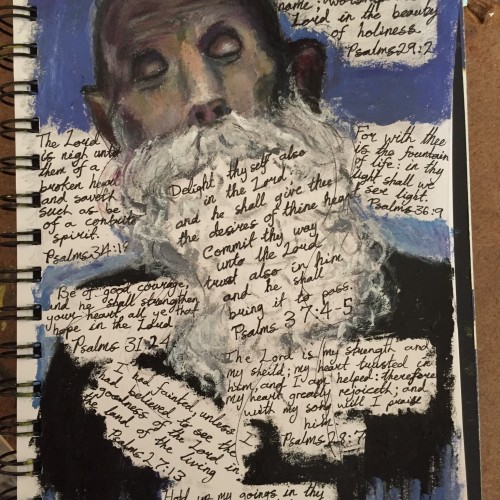 name; worship
Lord in the beauty
of holiness.
Psalms 29:2
The Lord
is nigh unto
them of a
broken heart
and saveth
such as be
of a contrite
spirit.
Psalms 34:18
For with thee
is the fountain
of life: in thy
light shall we
see light.
Psalms 36:9
Delight thyself also
in the Lord;
and he shall give thee
the desires of thine heart
Commit thy way
unto the Lord
trust also in him
and he shall
bring it to pass.
Psalms 37:4-5
Be of good courage,
and he shall strengthen
your heart, all ye that
hope in the Lord
Psalms 31:24
The Lord is my strength and
my sheild; my heart trusted in
him, and I am helped: therefore
my heart greatly rejoiceth; and
with my song will I praise
him.
Psalms 28:7
I had fainted, unless
had believed to see the
goodness of the Lord in
the land of the living
Psalms 27:13
I
Hold up my goings in thy